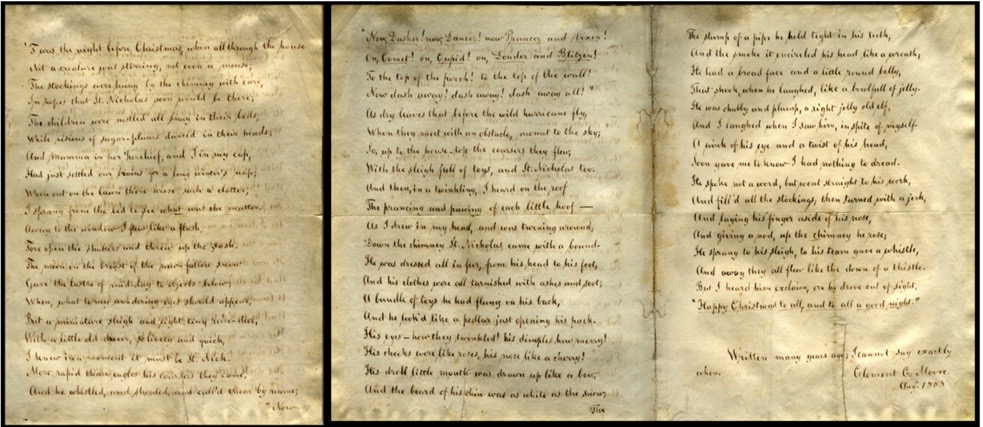 'Twas the night before Christmas, when all through the house
Not a creature was stirring, not even a mouse;
The stockings were hung by the chimney with care,
In hopes that St. Nicholas soon would be there;
The children were nestled all snug in their beds;
While visions of sugar-plums danced in their heads;
And Mamma in her 'kerchief, and I in my cap,
Had just settled our brains for a long winter's nap;
When out on the lawn there arose such a clatter,
I sprang from the bed to see what was the matter.
Away to the window I flew like a flash,
Tore open the shutters and threw up the sash;
The moon on the breast of the new-fallen snow
Gave the lustre of mid-day to objects below,
When, what to my wondering eyes should appear,
But a miniature sleigh and eight tiny rein-deer,
With a little old driver, so lively and quick,
I knew in a moment it must be St. Nick.
More rapid than eagles his coursers they came,
And he whistled, and shouted, and call'd them by name;
"Now
"Now, Dasher! now, Dancer! now Prancer and Vixen!
On, Comet! on, Cupid! on, Donder and Blitzen!
To the top of the porch! to the top of the wall!
Now dash away! dash away! dash away all!"
As dry leaves that before the wild hurricane fly,
When they meet with an obstacle, mount to the sky;
So, up to the house-top the coursers they flew,
With the sleigh full of toys, and St. Nicholas too.
And then, in a twinkling, I heard on the roof
The prancing and pawing of each little hoof —
As I drew in my head, and was turning around,
Down the chimney St. Nicholas came with a bound.
He was dressed all in fur, from his head to his foot,
And his clothes were all tarnished with ashes and soot;
A bundle of toys he had flung on his back,
And he look'd like a pedlar just opening his pack.
His eyes — how they twinkled! his dimples how merry!
His cheeks were like roses, his nose like a cherry!
His droll little mouth was drawn up like a bow,
And the beard of his chin was as white as the snow;
The
The stump of a pipe he held tight in his teeth,
And the smoke it encircled his head like a wreath;
He had a broad face and a little round belly,
That shook, when he laughed, like a bowlfull of jelly.
He was chubby and plump, a right jolly old elf,
And I laughed when I saw him, in spite of myself.
A wink of his eye and a twist of his head,
Soon gave me to know I had nothing to dread.
He spoke not a word, but went straight to his work,
And fill'd all the stockings; then turned with a jerk,
And laying his finger aside of his nose,
And giving a nod, up the chimney he rose;
He sprang to his sleigh, to his team gave a whistle,
And away they all flew like the down of a thistle.
But I heard him exclaim, ere he drove out of sight,
"Happy Christmas to all, and to all a good night."
Written many years ago; I cannot say exactly
when.
Clement C. Moore.
Aug. 1853